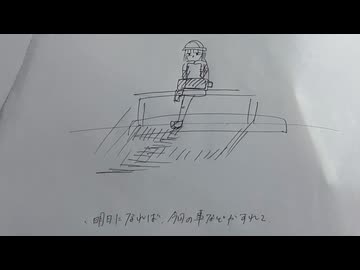 明日になれば、今回の事なぞわすれて